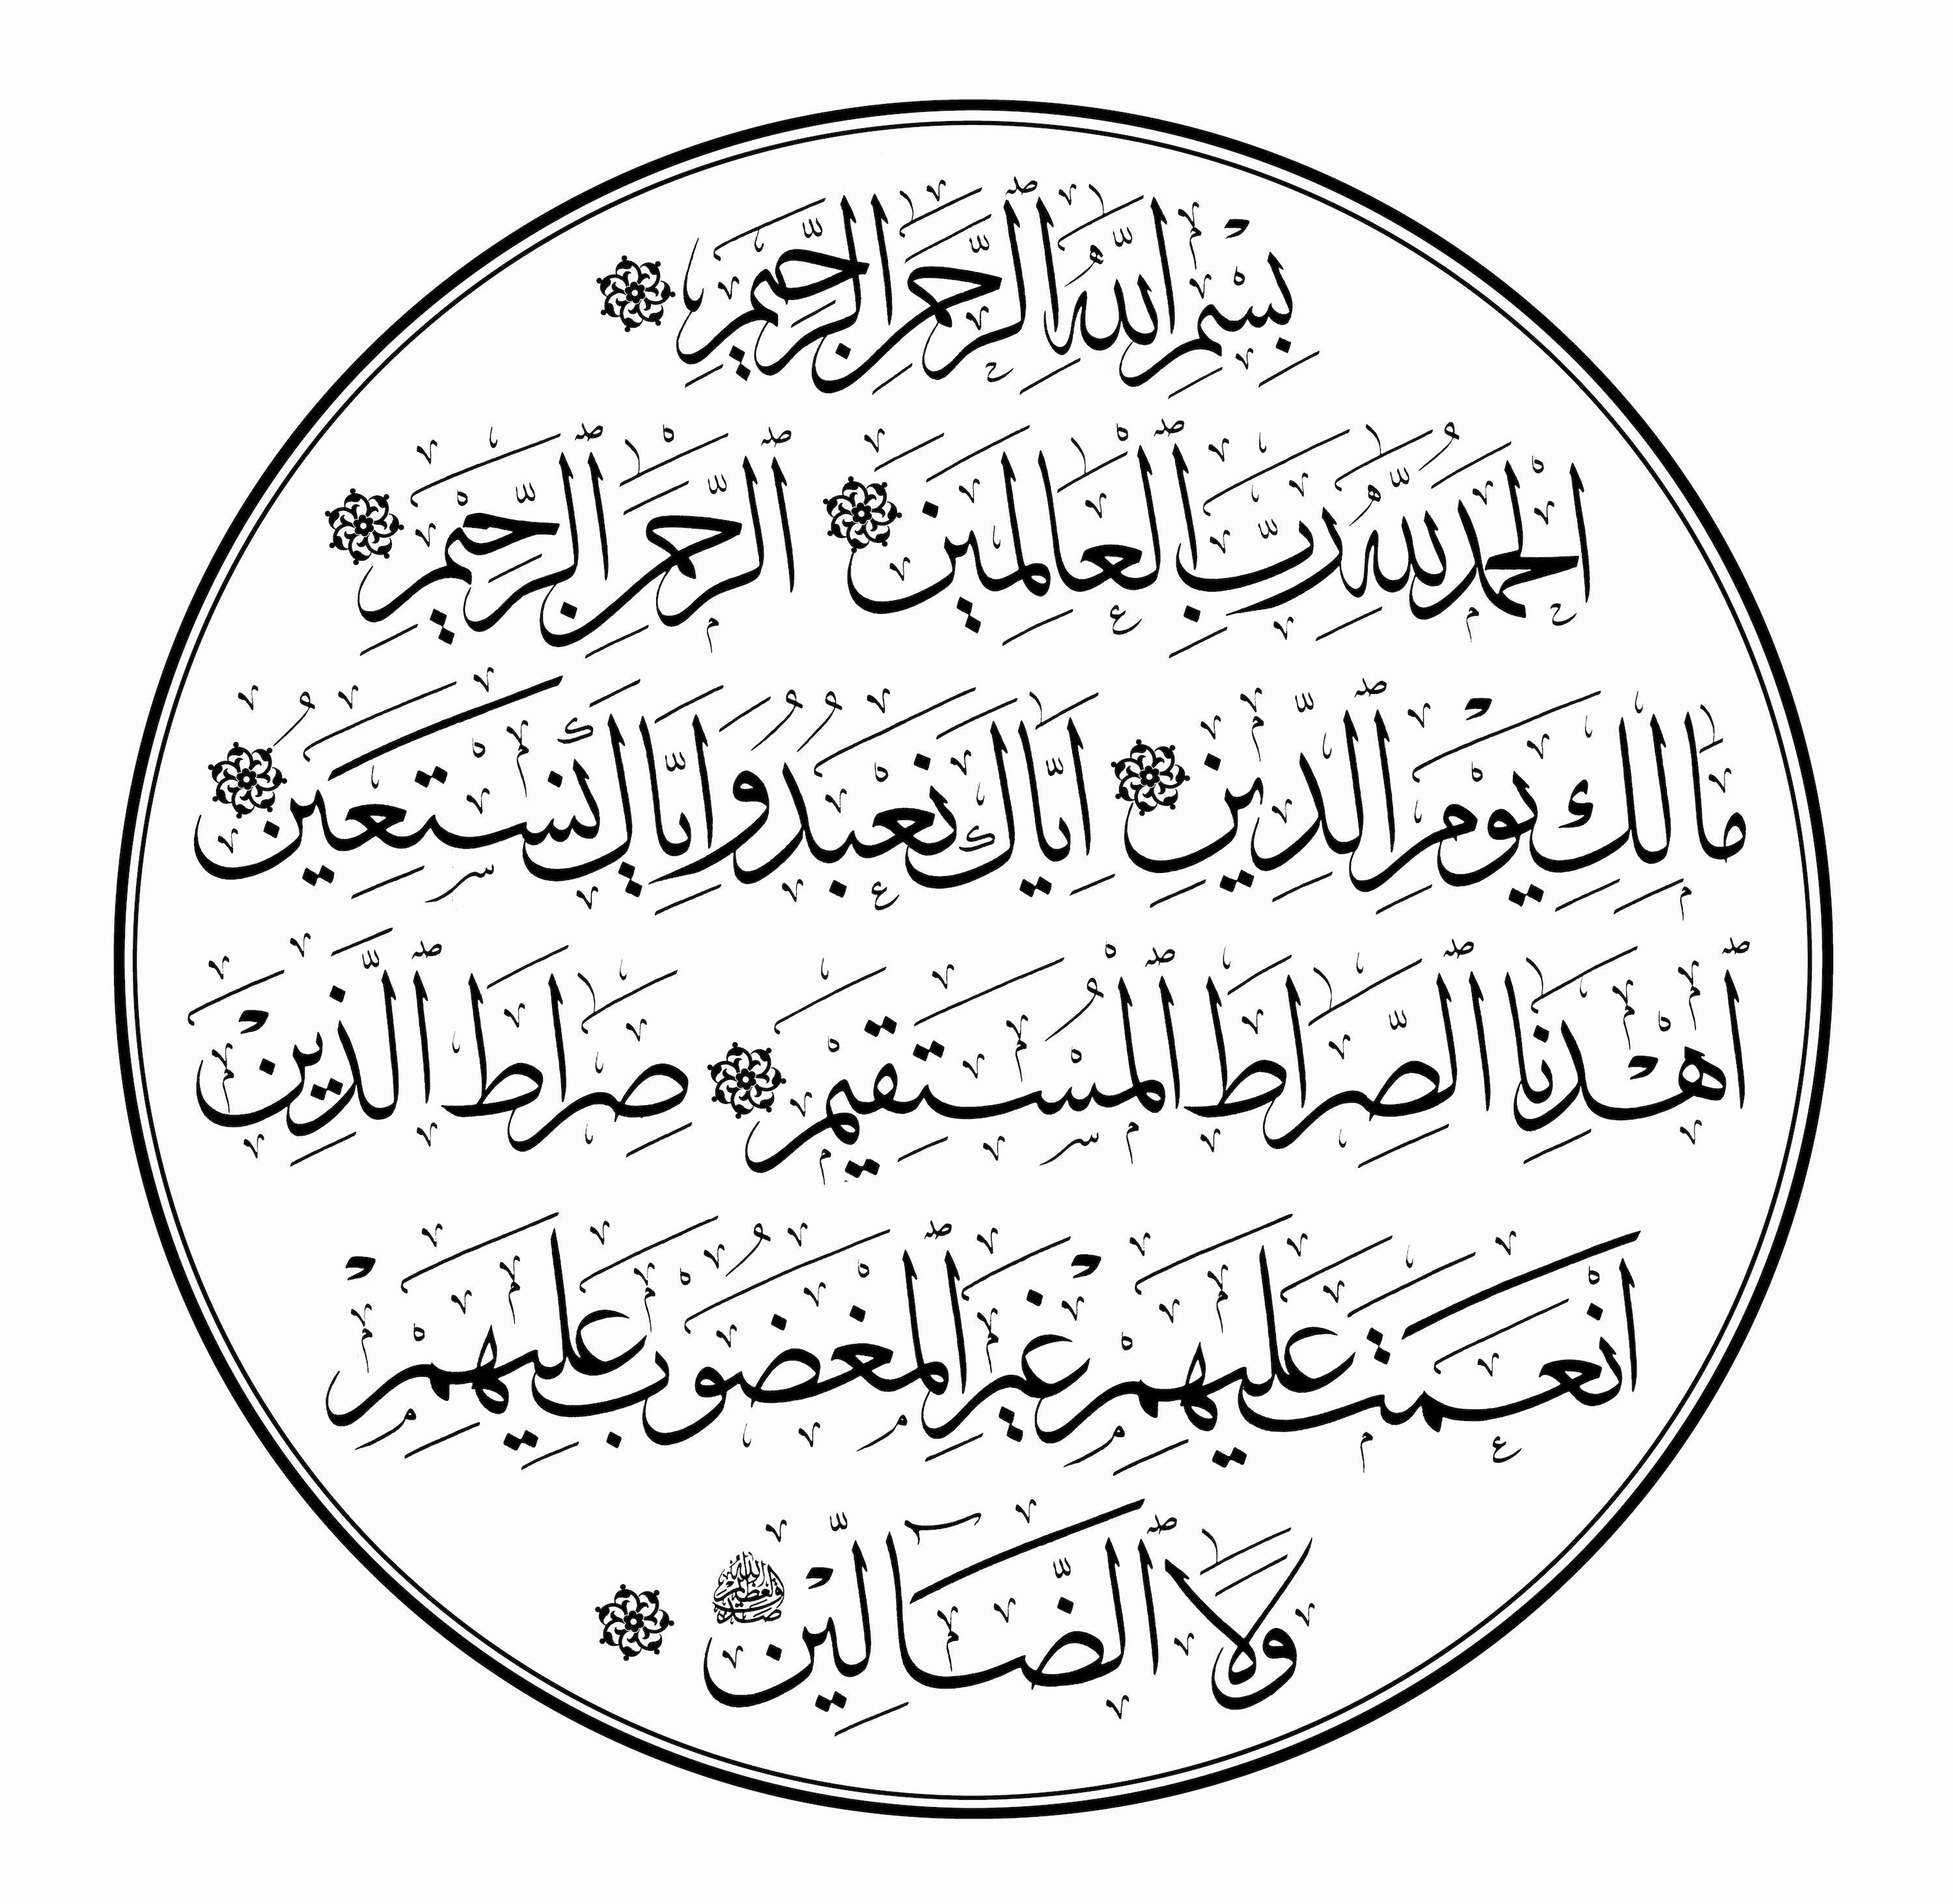 بِسْمِ اللَّهِ الرَّحْمَنِ الرَّحِيمِ
الْحَمْدُ لِلَّهِ رَبِّ الْعَالَمِينَ الرَّحْمَنِ الرَّحِيمِ
مَالِكِ يَوْمِ الدِّينِ إِيَّاكَ نَعْبُدُ وَإِيَّاكَ نَسْتَعِينُ
اهْدِنَا الصِّرَاطَ الْمُسْتَقِيمَ صِرَاطَ الَّذِينَ
أَنْعَمْتَ عَلَيْهِمْ غَيْرِ الْمَغْضُوبِ عَلَيْهِمْ
وَلَا الضَّالِّينَ